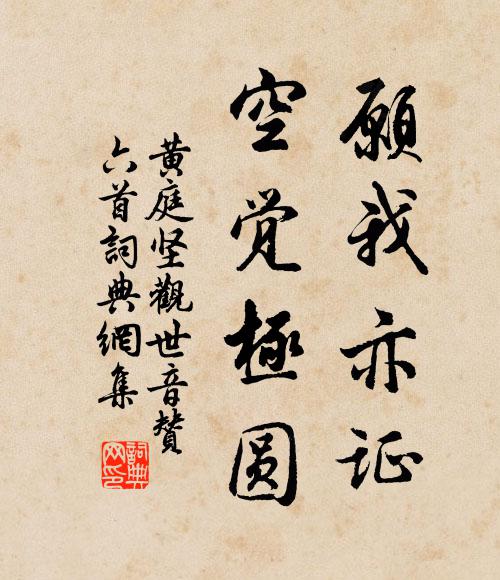 願我亦证
空觉極圆
黄庭坚觀世音贊
六首詞典網集
詞典
网印